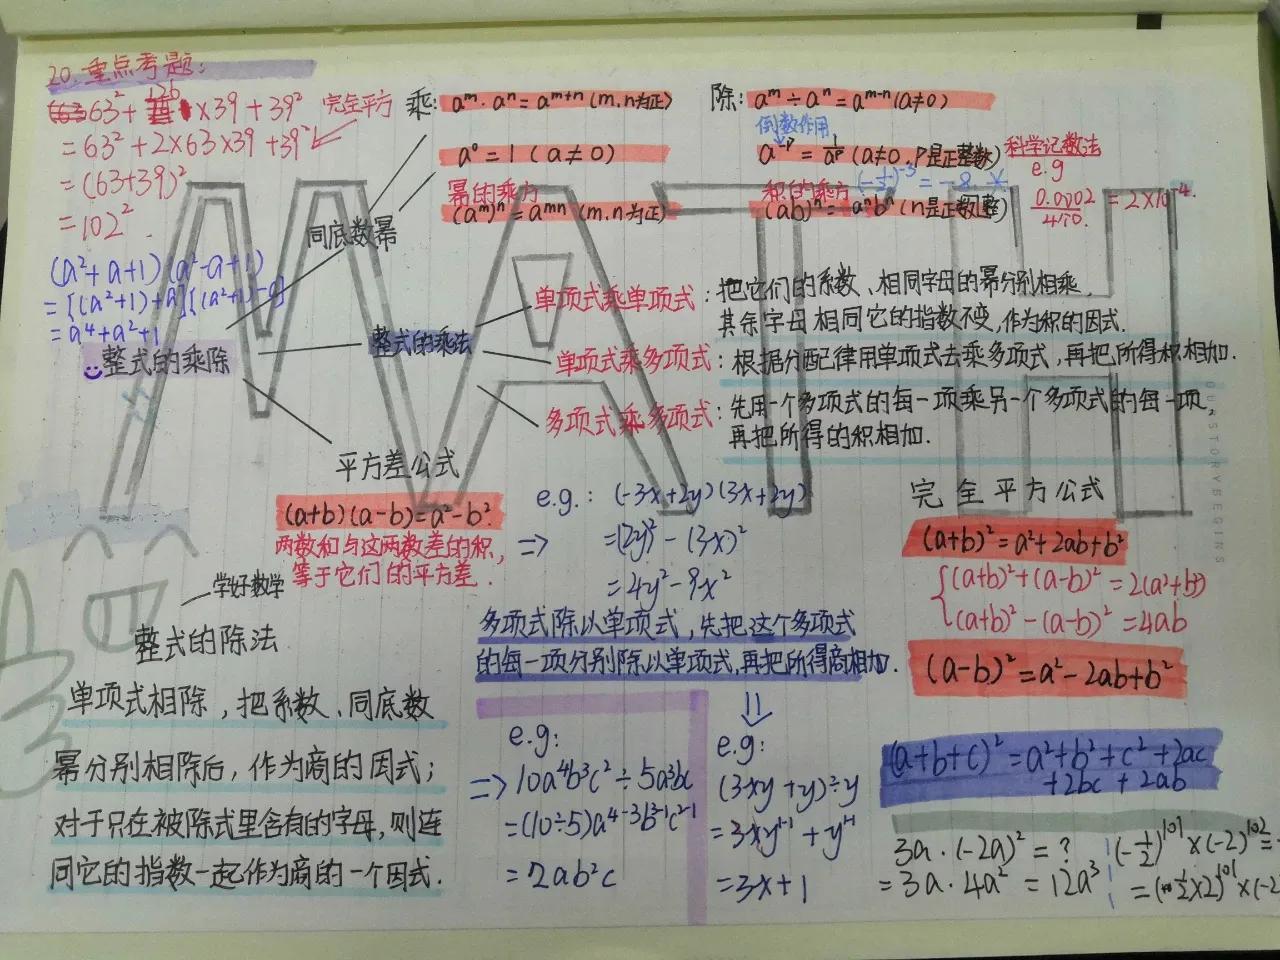 20.重点考题:
63²+126×39+39²
完全平方
=63²+2×63×39+39²
=(63+39)²
=102².
(a²+a+1)(a²-a+1)
=[(a²+1)+a][(a²+1)-a]
=a⁴+a²+1
整式的乘除
同底数幂
乘: aᵐ·aⁿ=aᵐ⁺ⁿ(m,n为正)
a⁰=1(a≠0)
幂的乘方
(aᵐ)ⁿ=aᵐⁿ(m,n为正)
除: aᵐ÷aⁿ=aᵐ⁻ⁿ(a≠0)
倒数作用
a⁻ᵖ=1/aᵖ(a≠0,P是正整数)
积的乘方
(ab)ⁿ=aⁿbⁿ(n是正数整)
科学记数法
e.g
=2×10⁻⁴.
MATH
整式的乘法
单项式乘单项式:把它们的系数、相同字母的幂分别相乘,
其余字母相同它的指数不变,作为积的因式.
单项式乘多项式:根据分配律用单项式去乘多项式,再把所得积相加.
多项式乘多项式:先用一个多项式的每一项乘另一个多项式的每一项,
再把所得的积相加.
OURSTORYBEGINS
平方差公式
(a+b)(a-b)=a²-b².
两数和与这两数差的积,
等于它们的平方差.
=>
e.g.: (-3x+2y)(3x+2y)
=(2y)²-(3x)²
=4y²-9x²
完全平方公式
(a+b)²=a²+2ab+b²
(a+b)²+(a-b)²=2(a²+b²)
(a+b)²-(a-b)²=4ab
(a-b)²=a²-2ab+b²
(a+b+c)²=a²+b²+c²+2ac
+2bc+2ab
学好数学
整式的除法
单项式相除,把系数、同底数
幂分别相除后,作为商的因式;
对于只在被除式里含有的字母,则连
同它的指数一起作为商的一个因式.
多项式除以单项式,先把这个多项式
的每一项分别除以单项式,再把所得商相加.
e.g:
=>10a⁴b³c²÷5a³bc
=(10÷5)a⁴⁻³b³⁻¹c²⁻¹
=2ab²c
e.g:
(3xy+y)÷y
=3xy¹⁻¹+y¹⁻¹
=3x+1
3a·(-2a)²=?
=3a·4a²=12a³
(-1/2)¹⁰¹×(-2)¹⁰²=